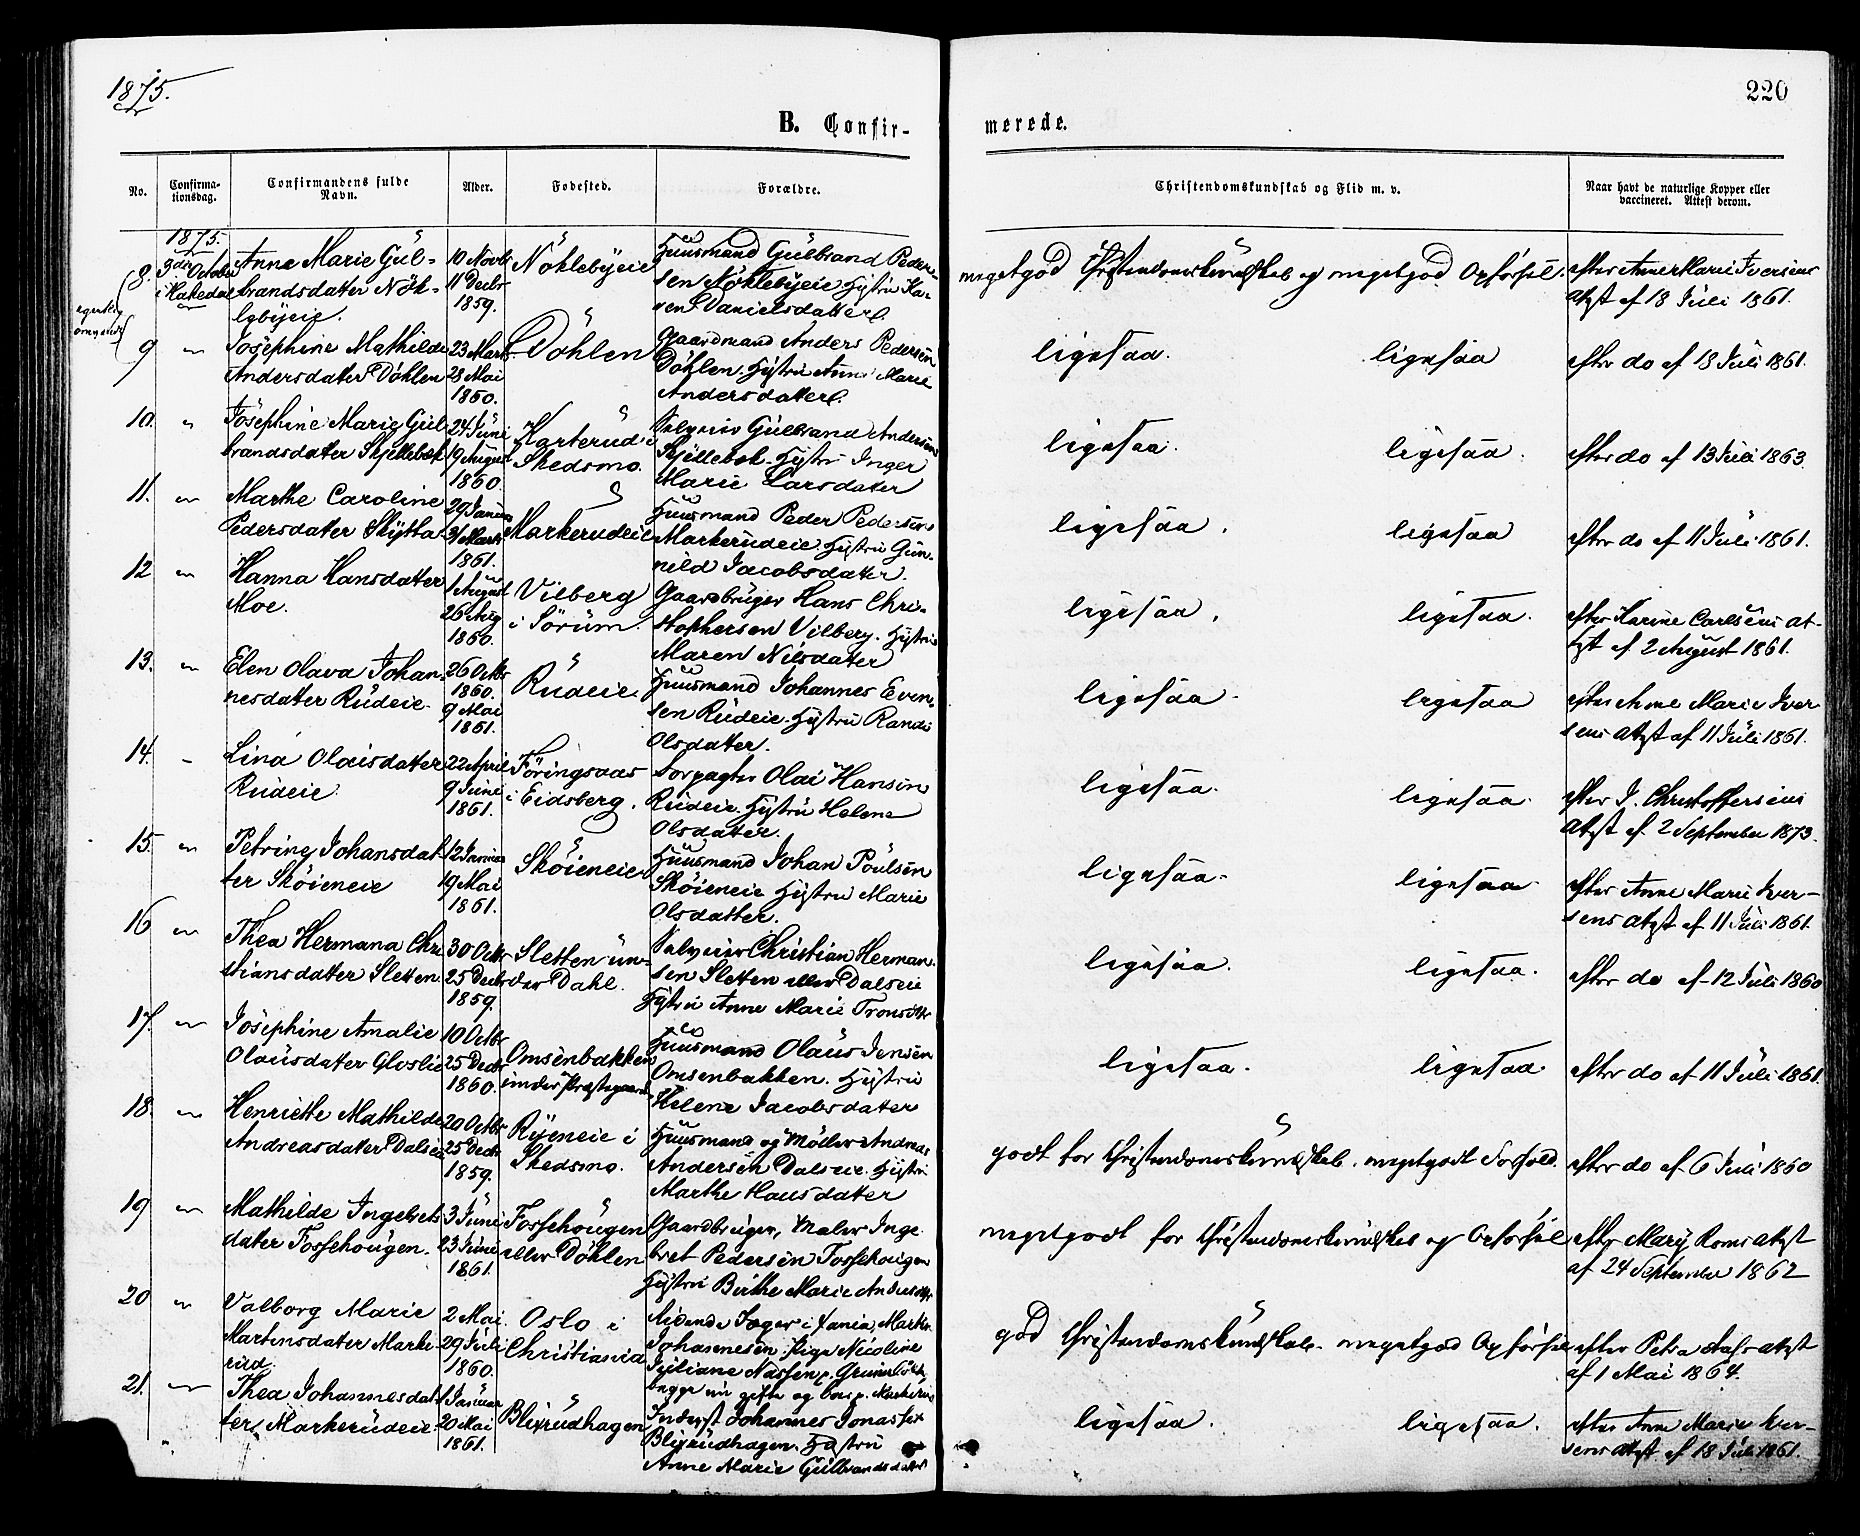 1875.
220
B. Confir-
merede.
No.
Confirma-
tionsdag.
Confirmandens fulde
Navn.
Alder.
Fødested.
Forældre.
Christendomskundskab og Flid m. v.
Naar havt de naturlige Kopper eller
vaccineret. Attest derom.
1875.
8.
3die October
Anne Marie Gul-
brandsdater Nök-
lebyeie.
10 Novbr
11 Decbr
1859.
Nöklebyeie
Huusmand Gulbrand Peder-
sen Nöklebyeie Hustru Ka-
ren Danielsdatter.
megetgod Christendomskundskab og megetgod Opförsel.
efter Anne Marie Iversens
Attest af 18 Juli 1861.
9
"
Josephine Mathilde
Andersdater Döhlen
23 Marts
28 Mai
1860.
Döhlen
Gaardmand Anders Pedersen
Döhlen. Hustru Anne Marie
Andersdatter.
ligesaa.
ligesaa
efter do af 18 Juli 1861.
10.
"
Josephine Marie Gul-
brandsdater Skjellebek
24 Juni
19 August
1860.
Karterud i
Skedsmo.
Selveier Gulbrand Andersens
Skjellebek. Hustru Inger
Marie Larsdater
ligesaa.
ligesaa.
efter do af 13 Juli 1863.
11.
"
Marthe Caroline
Pedersdater Skytta
29 Januar
31 Marts
1861.
Markerudeie
Huusmand Peder Pedersen
Markerudeie. Hustru Gun-
nild Jacobsdater.
ligesaa.
ligesaa
efter do af 11 Juli 1861.
12
"
Hanna Hansdater
Moe.
1 August
26 Aug
1860.
Vilberg
i Sörum.
Gaardbruger Hans Chri-
stophersen Vilberg. Hustru
Maren Nilsdater
ligesaa.
ligesaa.
efter Karine Carlsens at-
test af 2 August 1861.
13.
"
Elen Olava Johan-
nesdater Rudeie.
26 Octbr
1860.
9 Mai
1861.
Rudeie
Huusmand Johannes Even-
sen Rudeie. Hustru Randi
Olsdater.
ligesaa.
ligesaa
efter Anne Marie Iver-
sens Attest af 11 Juli 1861.
14.
"
Lina Olaisdater
Rudeie.
22 April
9 Juni
1861.
Föringsaas
i Eidsberg.
Forpagter Olai Hansen
Rudeie. Hustru Helene
Olsdater.
ligesaa.
ligesaa.
efter J. Christoffersens
Attest af 2 September 1873.
15.
"
Petrine Johansdat-
ter Sköieneie
12 Januar
19 Mai
1861.
Sköieneie
Huusmand Johan Poulsen
Sköieneie Hustru Marie
Olsdatter.
ligesaa.
ligesaa
efter Anne Marie Iver-
sens Attest af 11 Juli 1861.
16
"
Thea Hermana Chri-
stiansdater Sletten
30 Octbr
25 Decbr
1859.
Sletten un-
der Dahl.
Selveier Christian Herman-
sen Sletten eller Dalseie
Hustru Anne Marie
ligesaa.
ligesaa.
efter do af 12 Juli 1860
17.
"
Josephine Amalie
Olausdater Gloslie
10 Octbr
25 Decbr
1860.
Omsenbakken
under Præstegaard
Huusmand Olaus Jensen
Omsenbakken. Hustru
Helene Jacobsdater
ligesaa.
ligesaa
efter do af 11 Juli 1861.
18.
"
Henriette Mathilde
Andreasdater Dalseie
20 Octbr
25 Decbr
1859.
Ryeneie i
Skedsmo.
Huusmand og Möller Andreas
Andersen Dalseie. Hustru
Marthe Hansdater
godt for Christendomskundskab. megetgodt Forhold.
efter do af 6 Juli 1860
19
"
Mathilde Ingebrets-
dater Fossehougen.
3 Juni
23 Juni
1861.
Fossehougen
eller Döhlen
Gaardbruger, Maler Inge-
bret Pedersen Fossehougen
Hustru Birthe Marie
megetgodt for Christendomskundskab og Opförsel
efter Mary Roms Attest
af 24 September 1862
20
"
Valborg Marie
Martinsdater Marke-
rud.
2 Mai.
29 Juli
1860.
Oslo i
Christiania
Ridende Jæger i Xania, Martin
Johannesen. Pige Nicoline
Juliane
god Christendomskundskab. megetgod Opförsel
efter Petra Attest
af 1 Mai 1864.
21.
"
Thea Johannesdat-
ter Markerudeie
1 Januar
20 Mai
1861.
Blixrudhagen
Inderst Johannes Jonassen
Blixrudhagen. Hustru
Anne Marie Gulbrandsdater
ligesaa.
ligesaa.
efter Anne Marie Iver-
sens Attest af 18 Juli 1861.